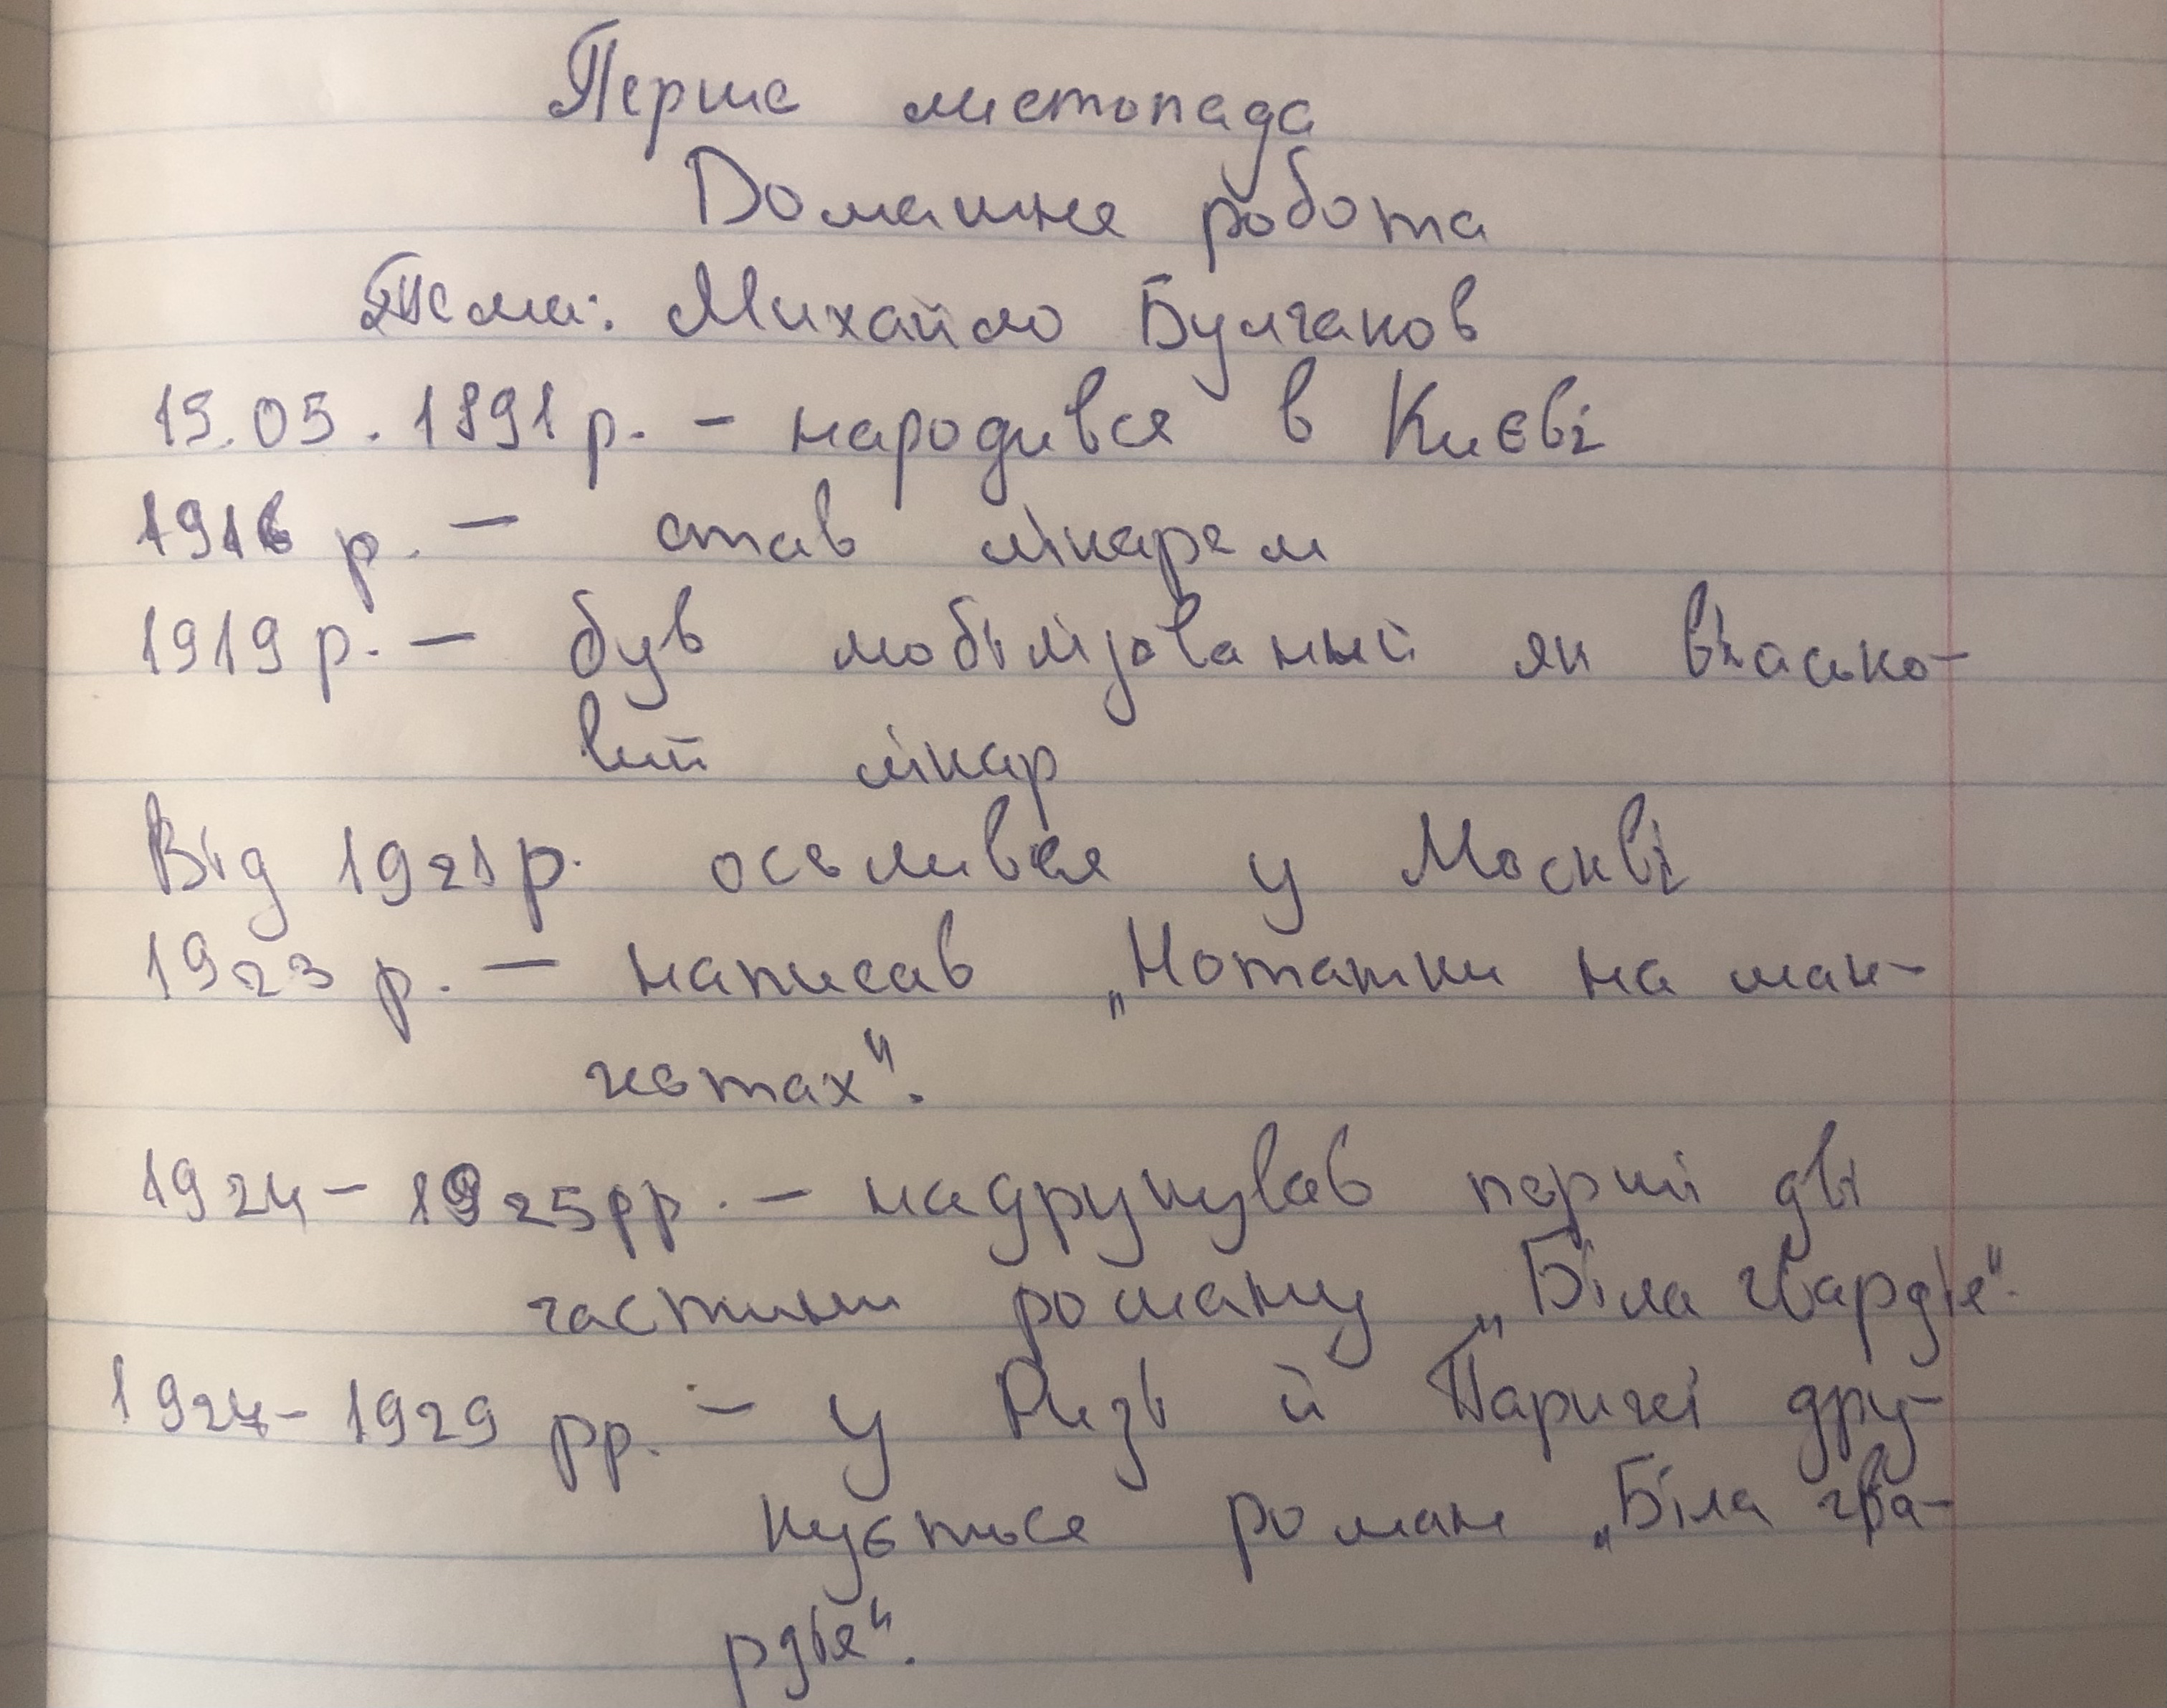 Перше листопада
Домашня робота
Тема: Михайло Булгаков
15.05.1891р. - народився в Києві
1916 р. - став лікарем
1919р. - був мобілізований як військо-
вий лікар
Від 1921р. оселився у Москві
1923 р. - написав „Нотатки на ман-
жетах".
1924-1925рр. - надрукував перші дві
частини роману „Біла гвардія".
1927-1929 рр. - у Ризі й Парижі дру-
кується роман „Біла гва-
рдія".